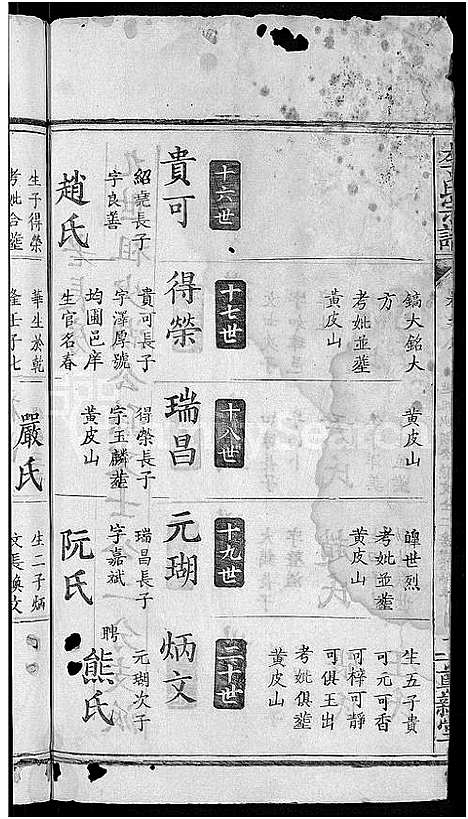 鎬大銘大
方
考妣並塟
黃皮山
黃皮山
雄世烈
考妣並塟
黃皮山
生五子貴
可元可香
可梓可靜
可俱王出
考妣俱塟
黃皮山
十六世
貴可
紹堯長子
字良善
趙氏
生子得榮
考妣合塟
十七世
得榮
貴可長子
字澤厚號
均圃邑庠
生官名春
華生於乾
隆壬子七
十八世
瑞昌
得榮長子
字玉麟塟
黃皮山
嚴氏
十九世
元瑚
瑞昌長子
字嘉斌
阮氏
生二子炳
文長煥文
二十世
炳文
元瑚次子
聘
熊氏